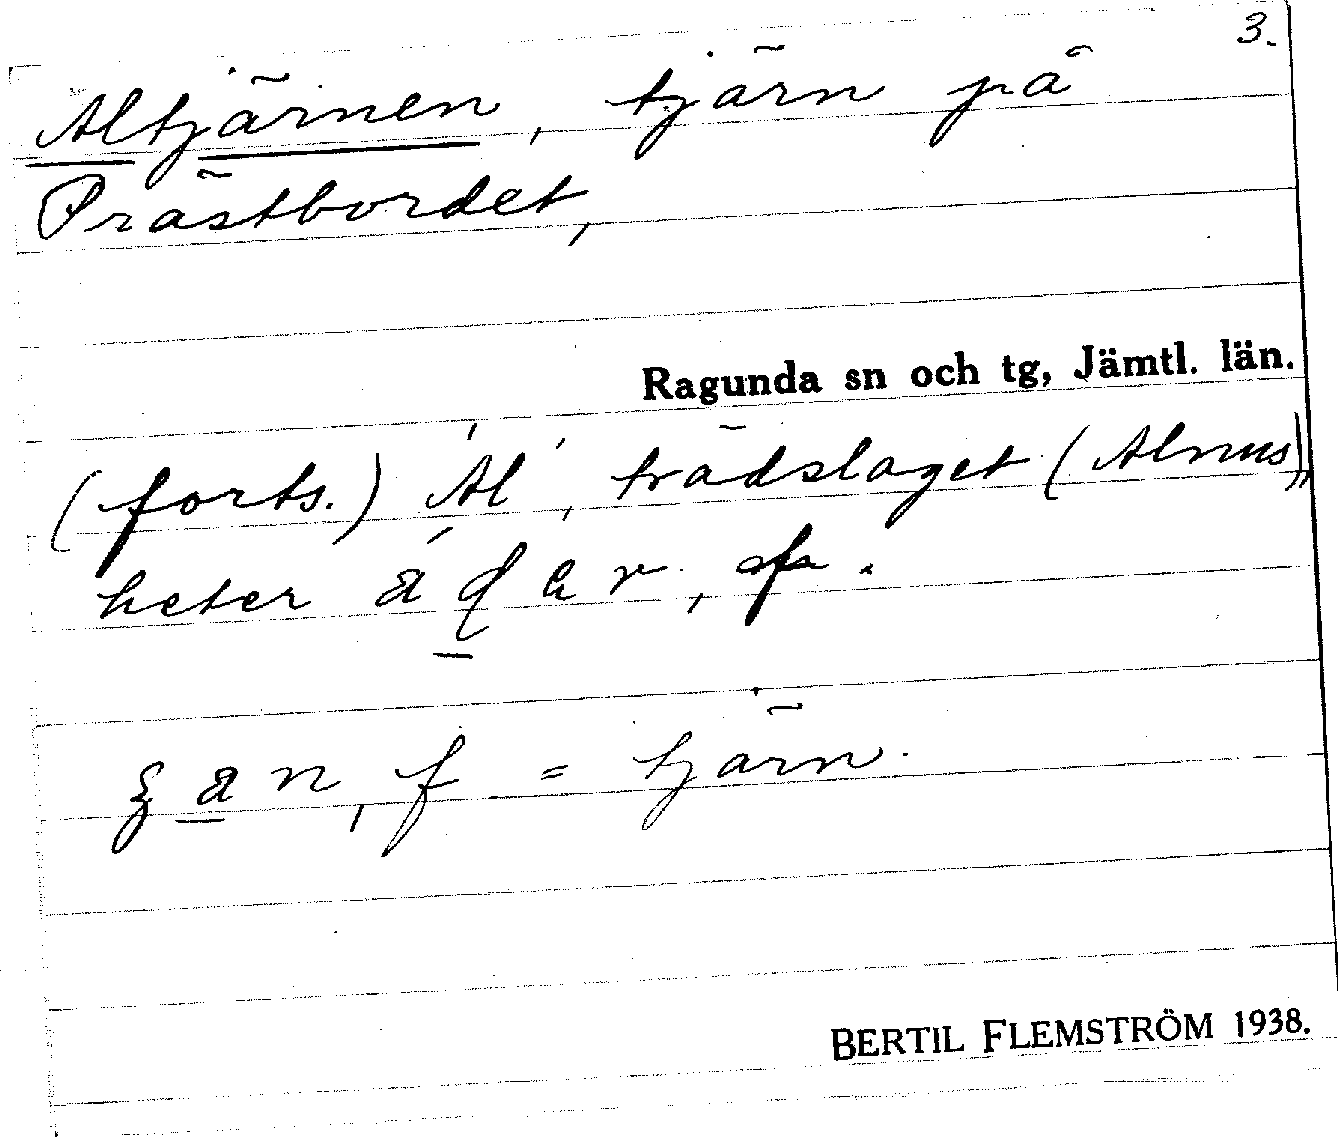 3.
Altjärnen, tjärn på
Prästbordet,
Ragunda sn och tg, Jämtl. län.
(forts.) 'Al', trädslaget (Alnus),
heter
, f = tjärn.
BERTIL FLEMSTRÖM 1938.